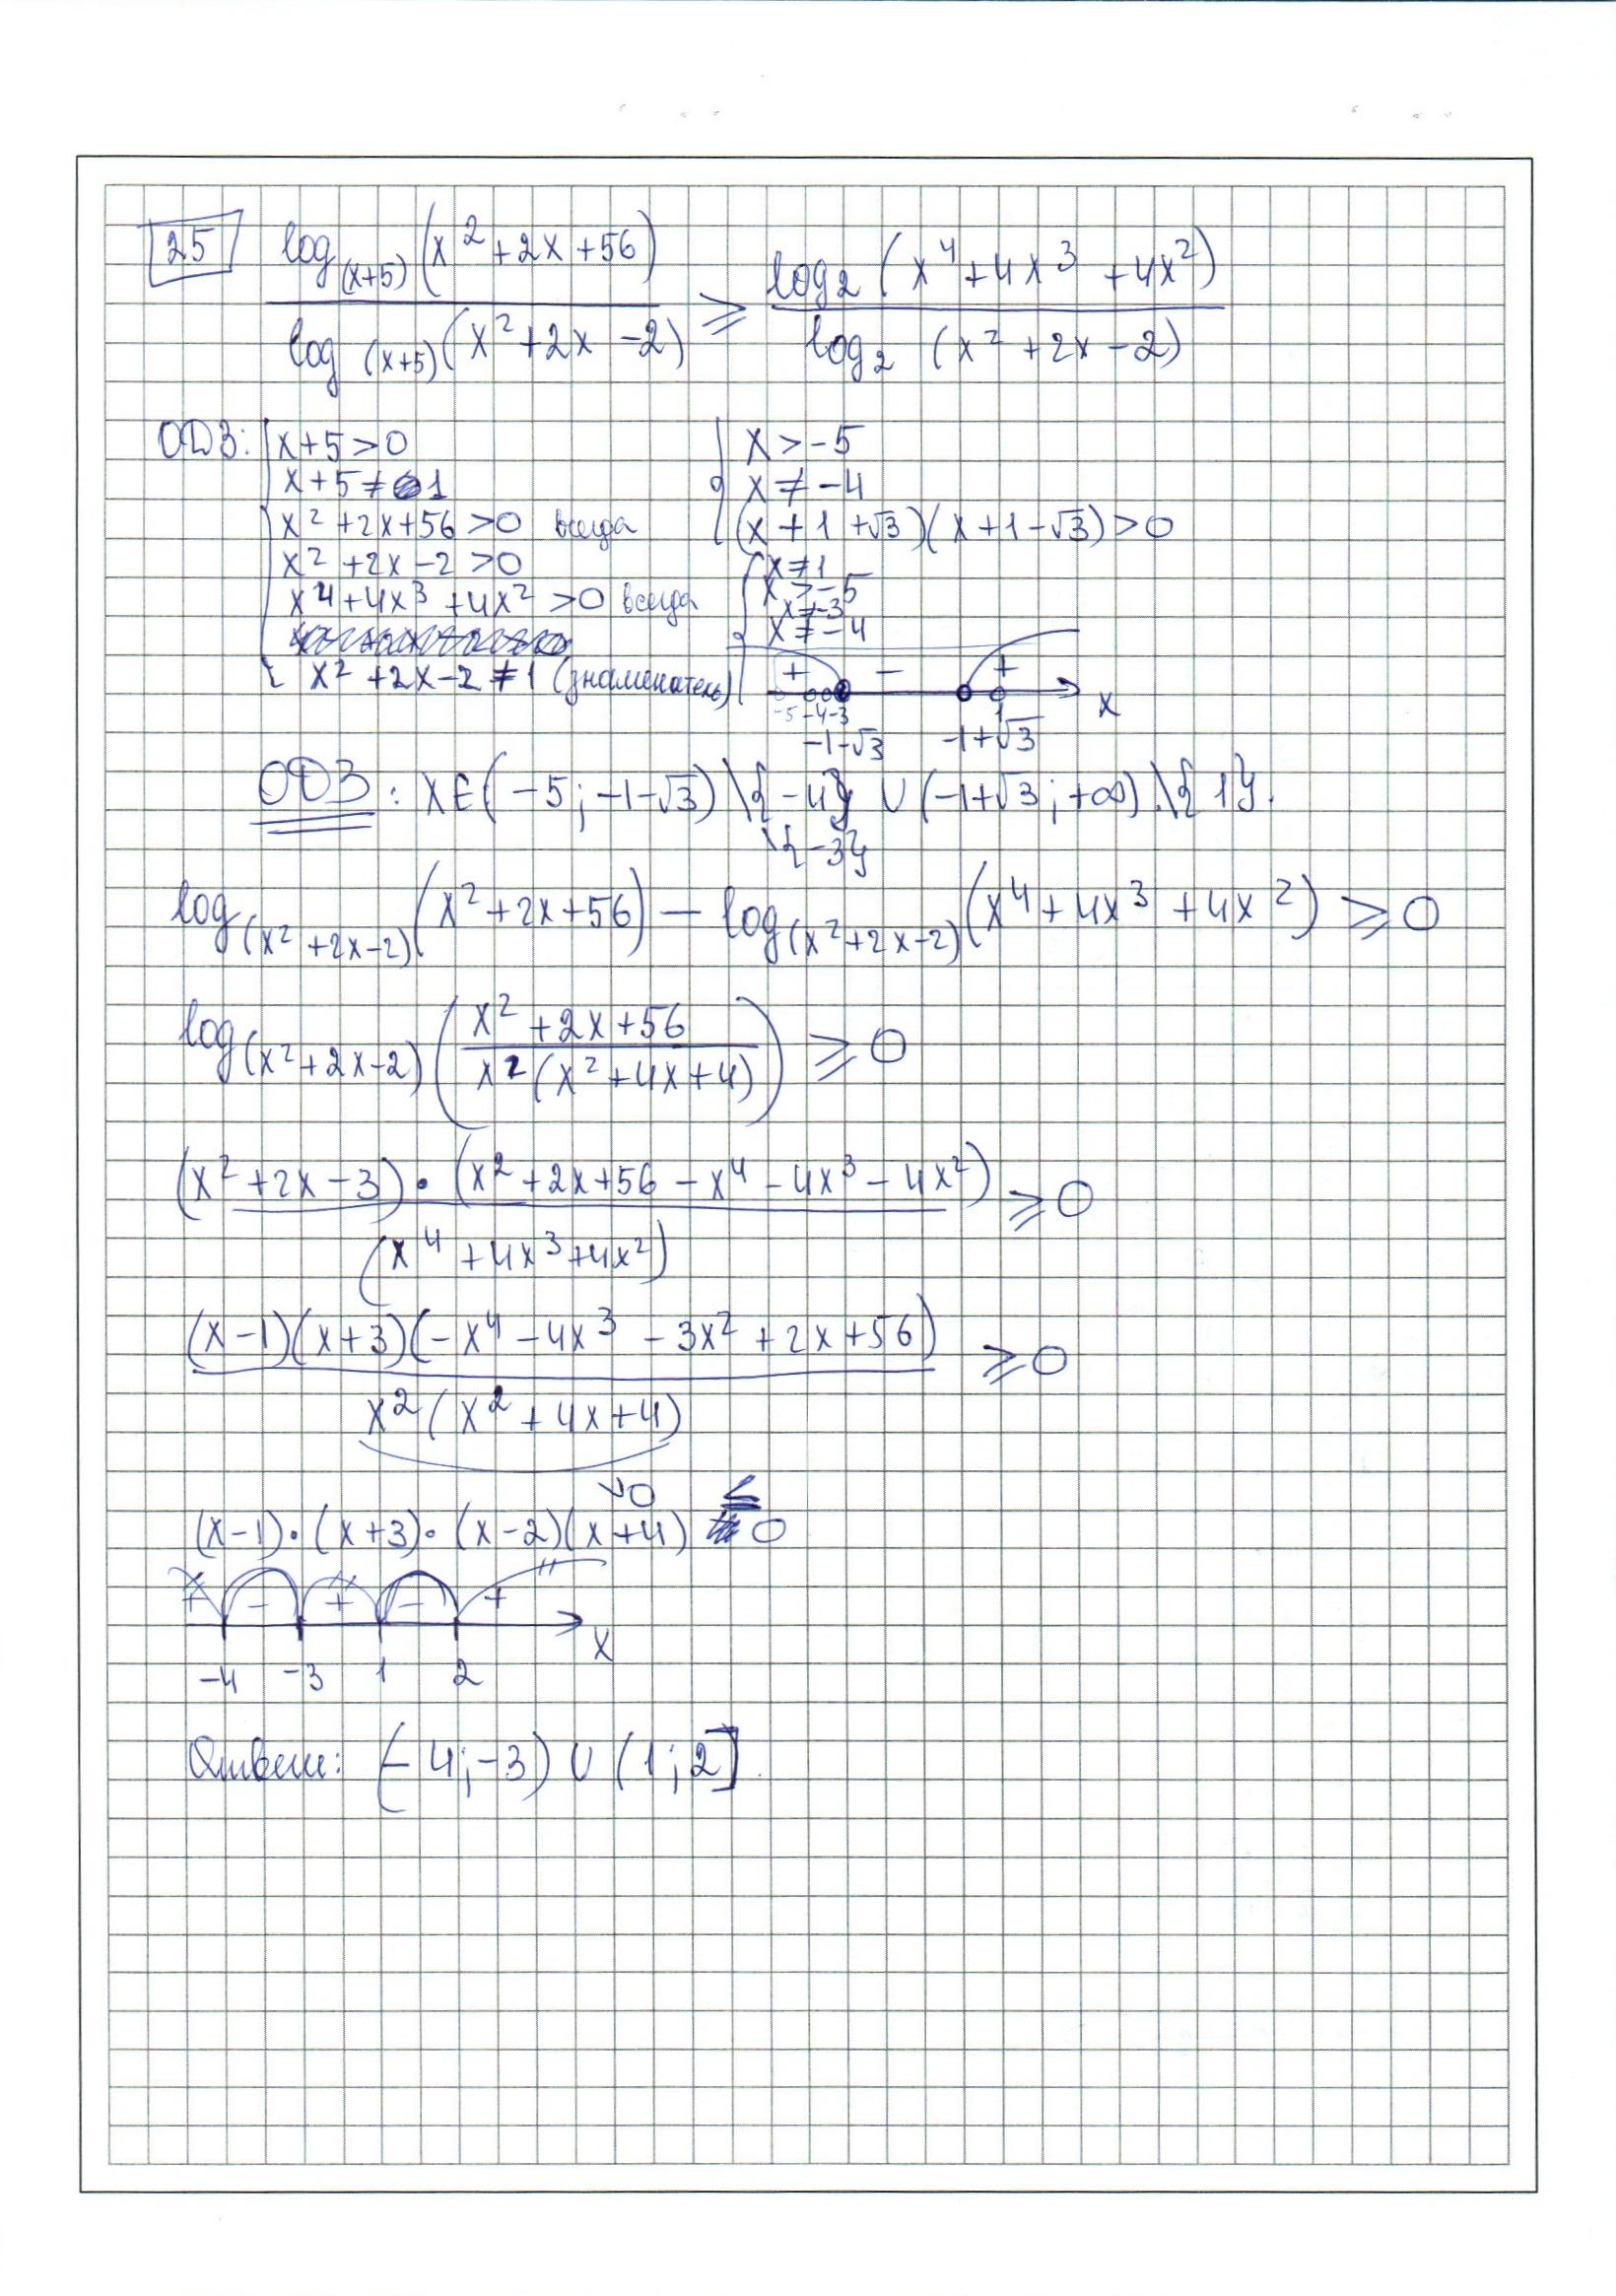 25 log_(x+5) (x² + 2x + 56) / log_(x+5) (x² + 2x - 2) ⩾ log₂ (x⁴ + 4x³ + 4x²) / log₂ (x² + 2x - 2)
ОДЗ: { x + 5 > 0
x + 5 ≠ 1
x² + 2x + 56 > 0 всегда
x² + 2x - 2 > 0
x⁴ + 4x³ + 4x² > 0 всегда
x² + 2x - 2 ≠ 1 (знаменатель)
{ x > -5
x ≠ -4
(x + 1 + √3)(x + 1 - √3) > 0
{ x ≠ 1
x > -5
x ≠ -3
x ≠ -4
+ - +
-5 -4 -3 1 x
-1-√3 -1+√3
ОДЗ: x ∈ (-5; -1-√3) \ {-4} ∪ (-1+√3; +∞) \ {1}.
\ {-3}
log_(x² + 2x - 2) (x² + 2x + 56) - log_(x² + 2x - 2) (x⁴ + 4x³ + 4x²) ⩾ 0
log_(x² + 2x - 2) ((x² + 2x + 56) / (x² (x² + 4x + 4))) ⩾ 0
(x² + 2x - 3) · (x² + 2x + 56 - x⁴ - 4x³ - 4x²) / (x⁴ + 4x³ + 4x²) ⩾ 0
(x - 1)(x + 3)(-x⁴ - 4x³ - 3x² + 2x + 56) / x² (x² + 4x + 4) ⩾ 0
>0
(x - 1) · (x + 3) · (x - 2)(x + 4) ≤ 0
+ - + - +
-4 -3 1 2 x
Ответ: (-4; -3) ∪ (1; 2].